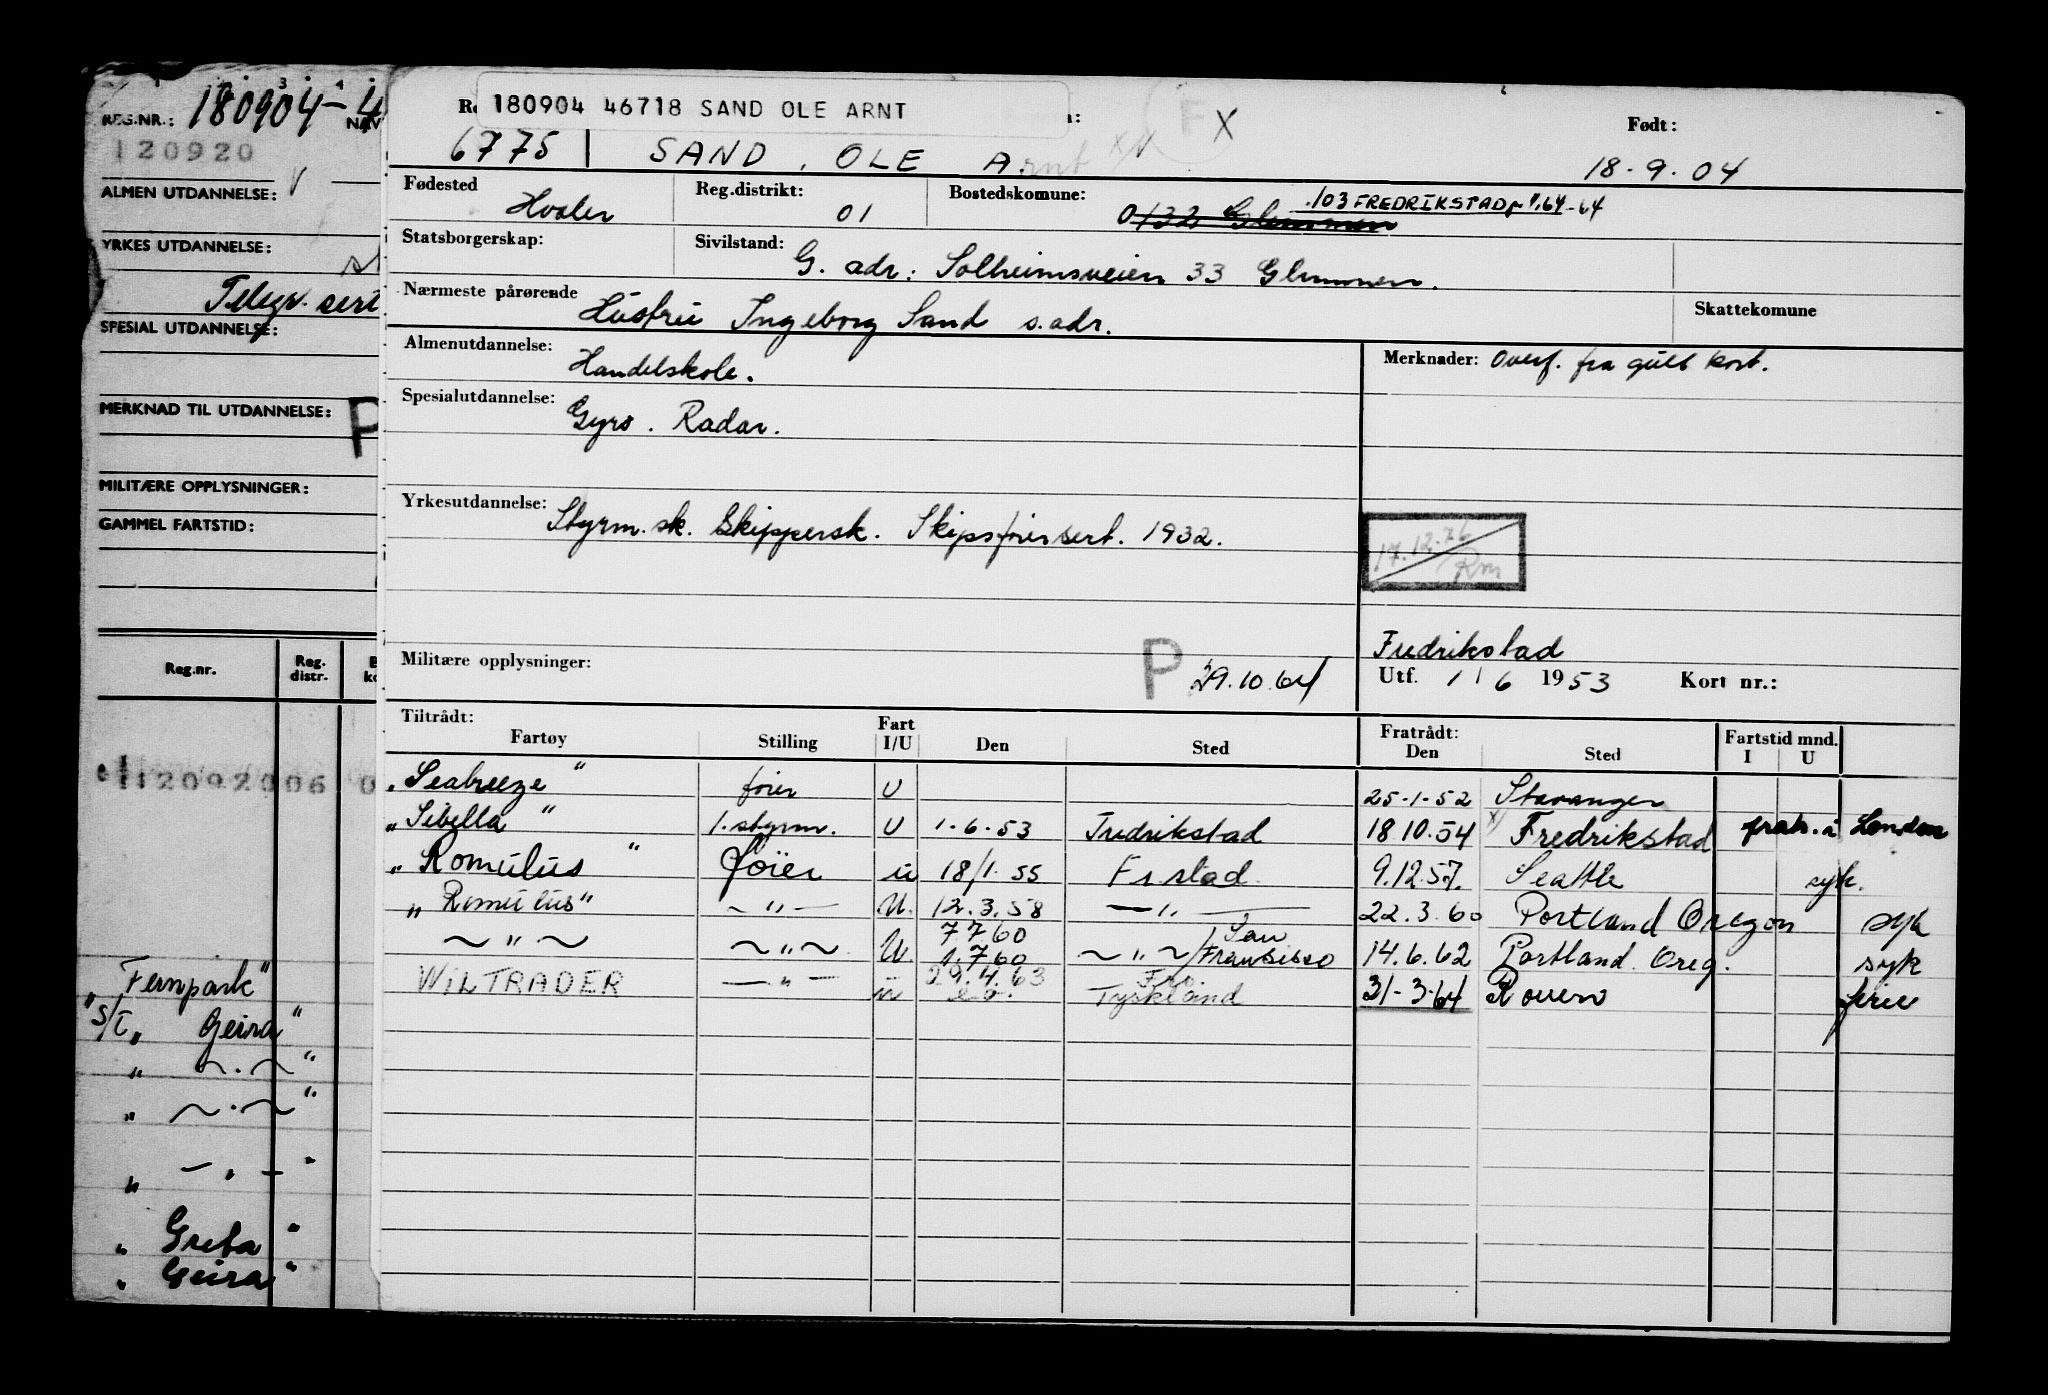 REG.NR.: 180904-4
NAV
120920
ALMEN UTDANNELSE: V
YRKES UTDANNELSE:
Telegr. sert
SPESIAL UTDANNELSE:
MERKNAD TIL UTDANNELSE: P
MILITÆRE OPPLYSNINGER:
GAMMEL FARTSTID:
Reg.nr. Reg. distr.
12092006 0
Fernpark"
"S/T " Geira"
" ~ . ~ "
" ~ . ~ "
" — " — "
" Greta "
" Geira "
180904 46718 SAND OLE ARNT
X
Født:
6775 SAND, OLE Arnt 18-9-04
Fødested Hvaler Reg.distrikt: 01 Bostedskomune: 0132 Glemmen .103 FREDRIKSTAD
Statsborgerskap: Sivilstand: G. adr.: Solheimsveien 33 Glemmen.
Nærmeste pårørende Hustru Ingeborg Sand s. adr. Skattekomune
Almenutdannelse: Handelskole.
Merknader: Overf. fra gult kort.
Spesialutdannelse: Gyro. Radar.
Yrkesutdannelse: Styrm. sk. Skippersk. Skipsførersert. 1932.
17.12.76
Rm
Militære opplysninger: P 29.10.64
Fredrikstad
Utf. 1/6 1953 Kort nr.:
Tiltrådt: Fartøy Stilling Fart I/U Den Sted Fratrådt: Den Sted Fartstid mnd. I U
"Seabreeze" fører U 25-1-52 Stavanger
"Sibella" 1. styrm. U 1-6-53 Fredrikstad 18 10.54 x Fredrikstad fratr. i London
"Romulus" fører u 18/1. 55 Fr.stad 9.12.57. Seattle syk.
"Romulus" ~ " — U. 12.3.58 — " — 22.3.60 Portland Oregon syk
~ " ~ ~ " ~ U. 7 7 60 1.7 60 ~ " ~ / San Fransisco 14.6.62 Portland Oreg. syk
WILTRADER — " — u 29.4.63 Tyskland 31-3-64 Rouen ferie